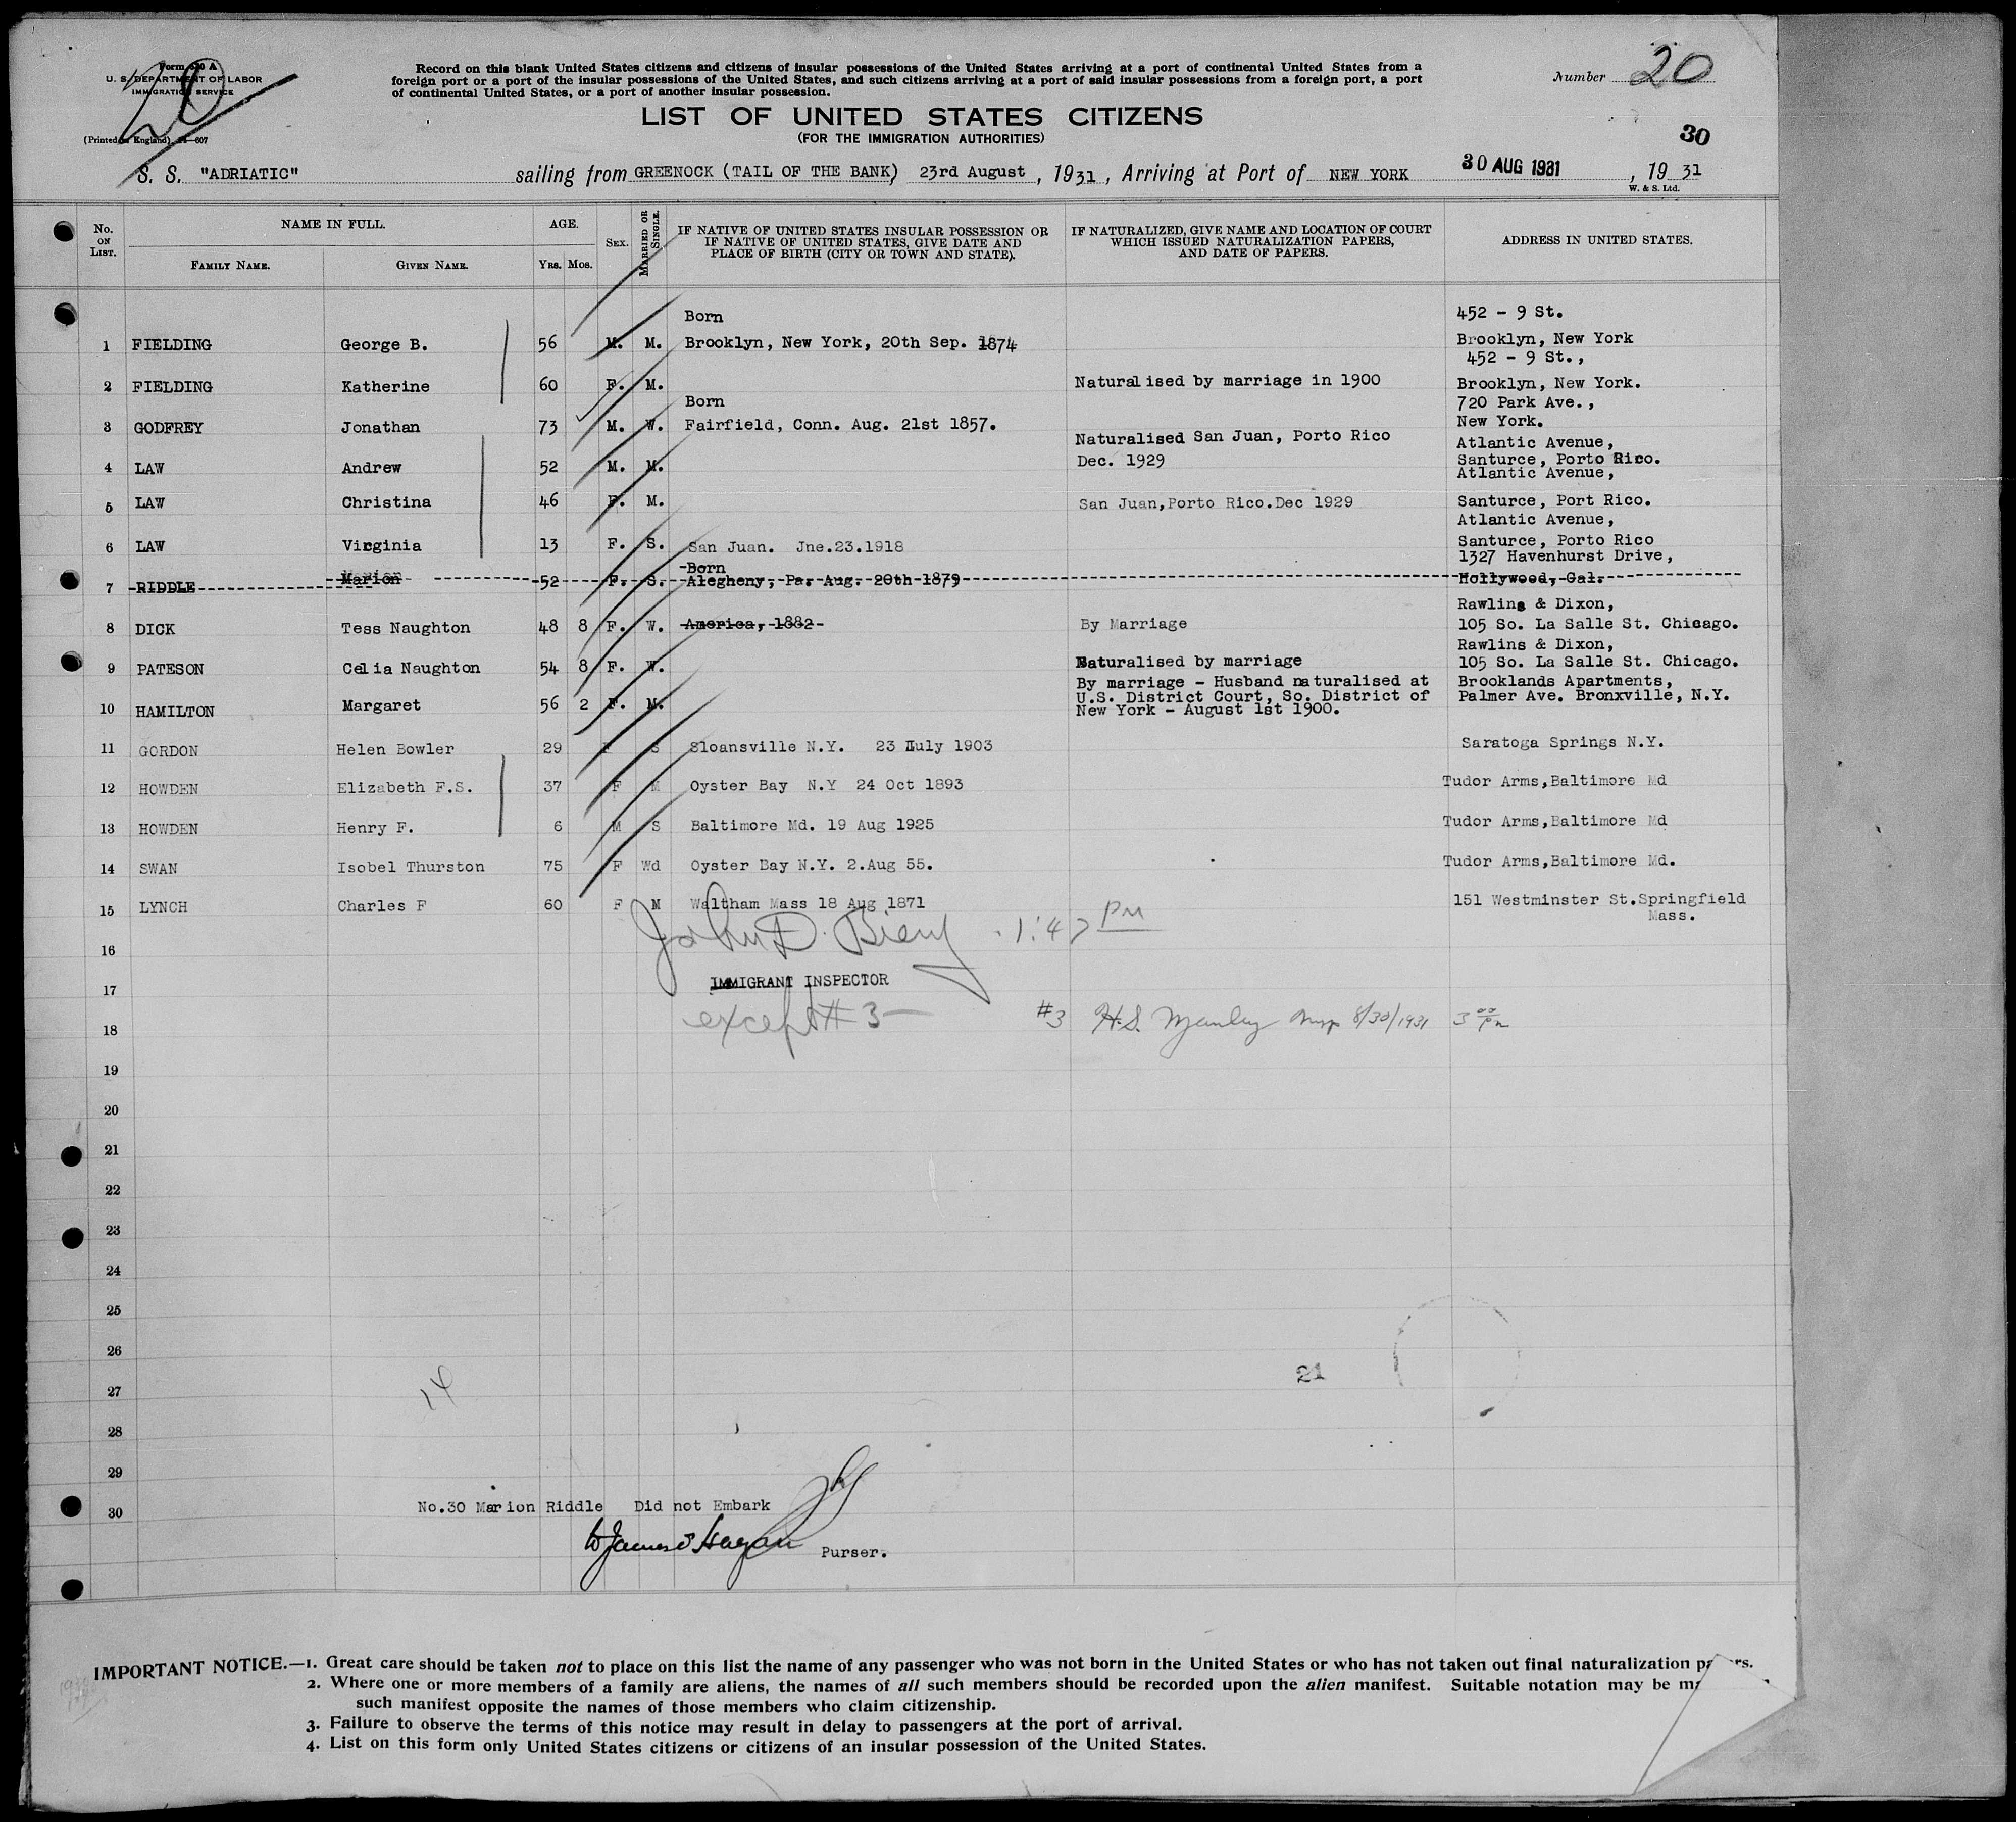 Form 630 A
U. S. DEPARTMENT OF LABOR
IMMIGRATION SERVICE
(Printed in England) 14—607
20
Record on this blank United States citizens and citizens of insular possessions of the United States arriving at a port of continental United States from a
foreign port or a port of the insular possessions of the United States, and such citizens arriving at a port of said insular possessions from a foreign port, a port
of continental United States, or a port of another insular possession.
Number 20
LIST OF UNITED STATES CITIZENS
(FOR THE IMMIGRATION AUTHORITIES)
30
S. S. "ADRIATIC" sailing from GREENOCK (TAIL OF THE BANK) 23rd August, 1931, Arriving at Port of NEW YORK 30 AUG 1931, 19 31
W. & S. Ltd.
No. ON LIST. NAME IN FULL. FAMILY NAME. GIVEN NAME. AGE. YRS. MOS. SEX. MARRIED OR SINGLE. IF NATIVE OF UNITED STATES INSULAR POSSESSION OR IF NATIVE OF UNITED STATES, GIVE DATE AND PLACE OF BIRTH (CITY OR TOWN AND STATE). IF NATURALIZED, GIVE NAME AND LOCATION OF COURT WHICH ISSUED NATURALIZATION PAPERS, AND DATE OF PAPERS. ADDRESS IN UNITED STATES.
Born 452 - 9 St.
1 FIELDING George B. 56 M. M. Brooklyn, New York, 20th Sep. 1874 Brooklyn, New York
452 - 9 St.,
2 FIELDING Katherine 60 F. M. Naturalised by marriage in 1900 Brooklyn, New York.
Born 720 Park Ave.,
3 GODFREY Jonathan 73 M. W. Fairfield, Conn. Aug. 21st 1857. New York.
Naturalised San Juan, Porto Rico Atlantic Avenue,
4 LAW Andrew 52 M. M. Dec. 1929 Santurce, Porto Rico.
Atlantic Avenue,
5 LAW Christina 46 F. M. San Juan,Porto Rico.Dec 1929 Santurce, Port Rico.
Atlantic Avenue,
6 LAW Virginia 13 F. S. San Juan. Jne.23.1918 Santurce, Porto Rico
Born 1327 Havenhurst Drive,
7 RIDDLE Marion 52 F. S. Alegheny, Pa. Aug. 20th 1879 Hollywood, Cal.
Rawlins & Dixon,
8 DICK Tess Naughton 48 8 F. W. America, 1882 By Marriage 105 So. La Salle St. Chicago.
Rawlins & Dixon,
9 PATESON Celia Naughton 54 8 F. W. Naturalised by marriage 105 So. La Salle St. Chicago.
By marriage - Husband naturalised at Brooklands Apartments,
10 HAMILTON Margaret 56 2 F. M. U.S. District Court, So. District of Palmer Ave. Bronxville, N.Y.
New York - August 1st 1900.
11 GORDON Helen Bowler 29 F S Sloansville N.Y. 23 July 1903 Saratoga Springs N.Y.
12 HOWDEN Elizabeth F.S. 37 F M Oyster Bay N.Y 24 Oct 1893 Tudor Arms,Baltimore Md
13 HOWDEN Henry F. 6 M S Baltimore Md. 19 Aug 1925 Tudor Arms,Baltimore Md
14 SWAN Isobel Thurston 75 F Wd Oyster Bay N.Y. 2.Aug 55. Tudor Arms,Baltimore Md.
15 LYNCH Charles F 60 F M Waltham Mass 18 Aug 1871 151 Westminster St.Springfield
Mass.
John D. 1:47 PM
16
IMMIGRANT INSPECTOR
17
except #3 #3 H.S. 8/30/1931 3 00 pm
18
19
20
21
22
23
24
25
26
21
27
14
28
29
No.30 Marion Riddle Did not Embark
30
Purser.
IMPORTANT NOTICE.—1. Great care should be taken not to place on this list the name of any passenger who was not born in the United States or who has not taken out final naturalization
2. Where one or more members of a family are aliens, the names of all such members should be recorded upon the alien manifest. Suitable notation may be
such manifest opposite the names of those members who claim citizenship.
3. Failure to observe the terms of this notice may result in delay to passengers at the port of arrival.
4. List on this form only United States citizens or citizens of an insular possession of the United States.